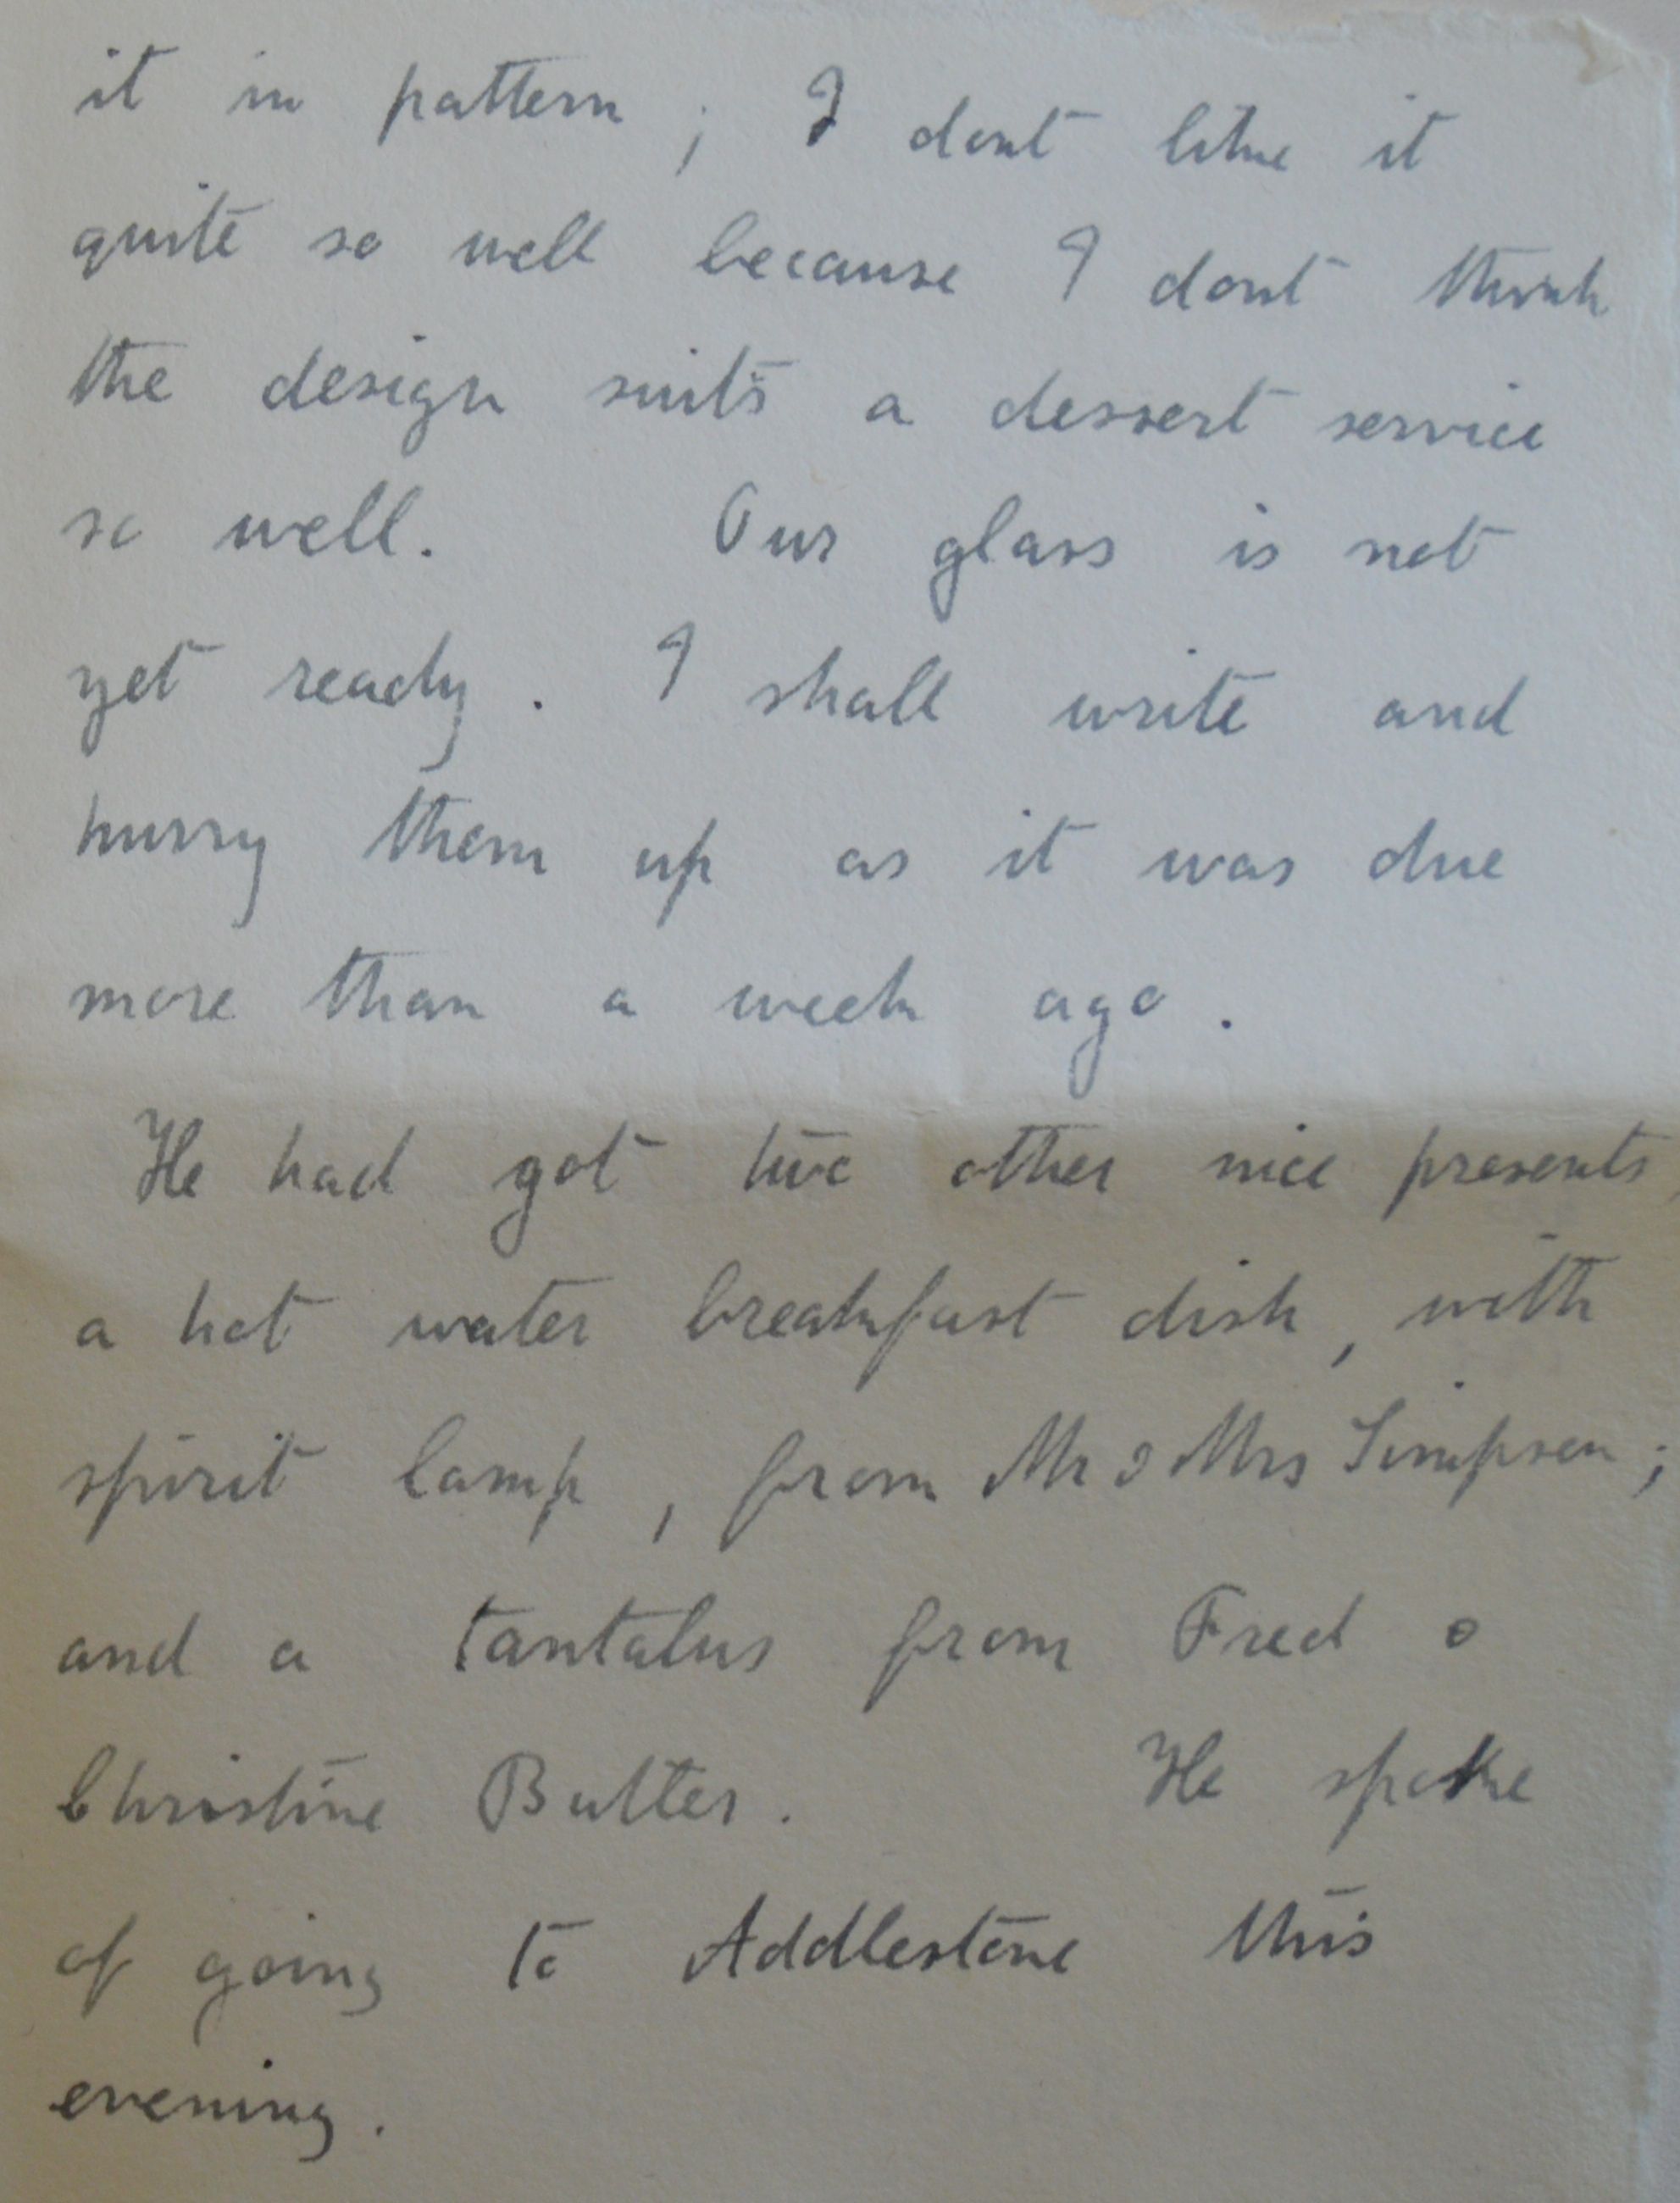 it in pattern ; I dont like it
quite so well because I dont think
the design suits a dessert service
so well. Our glass is not
yet ready. I shall write and
hurry them up as it was due
more than a week ago.
He had got two other nice presents,
a hot water breakfast dish, with
spirit lamp, from Mr & Mrs Simpson ;
and a tantalus from Fred &
Christine Butter. He spoke
of going to Addlestone this
evening.